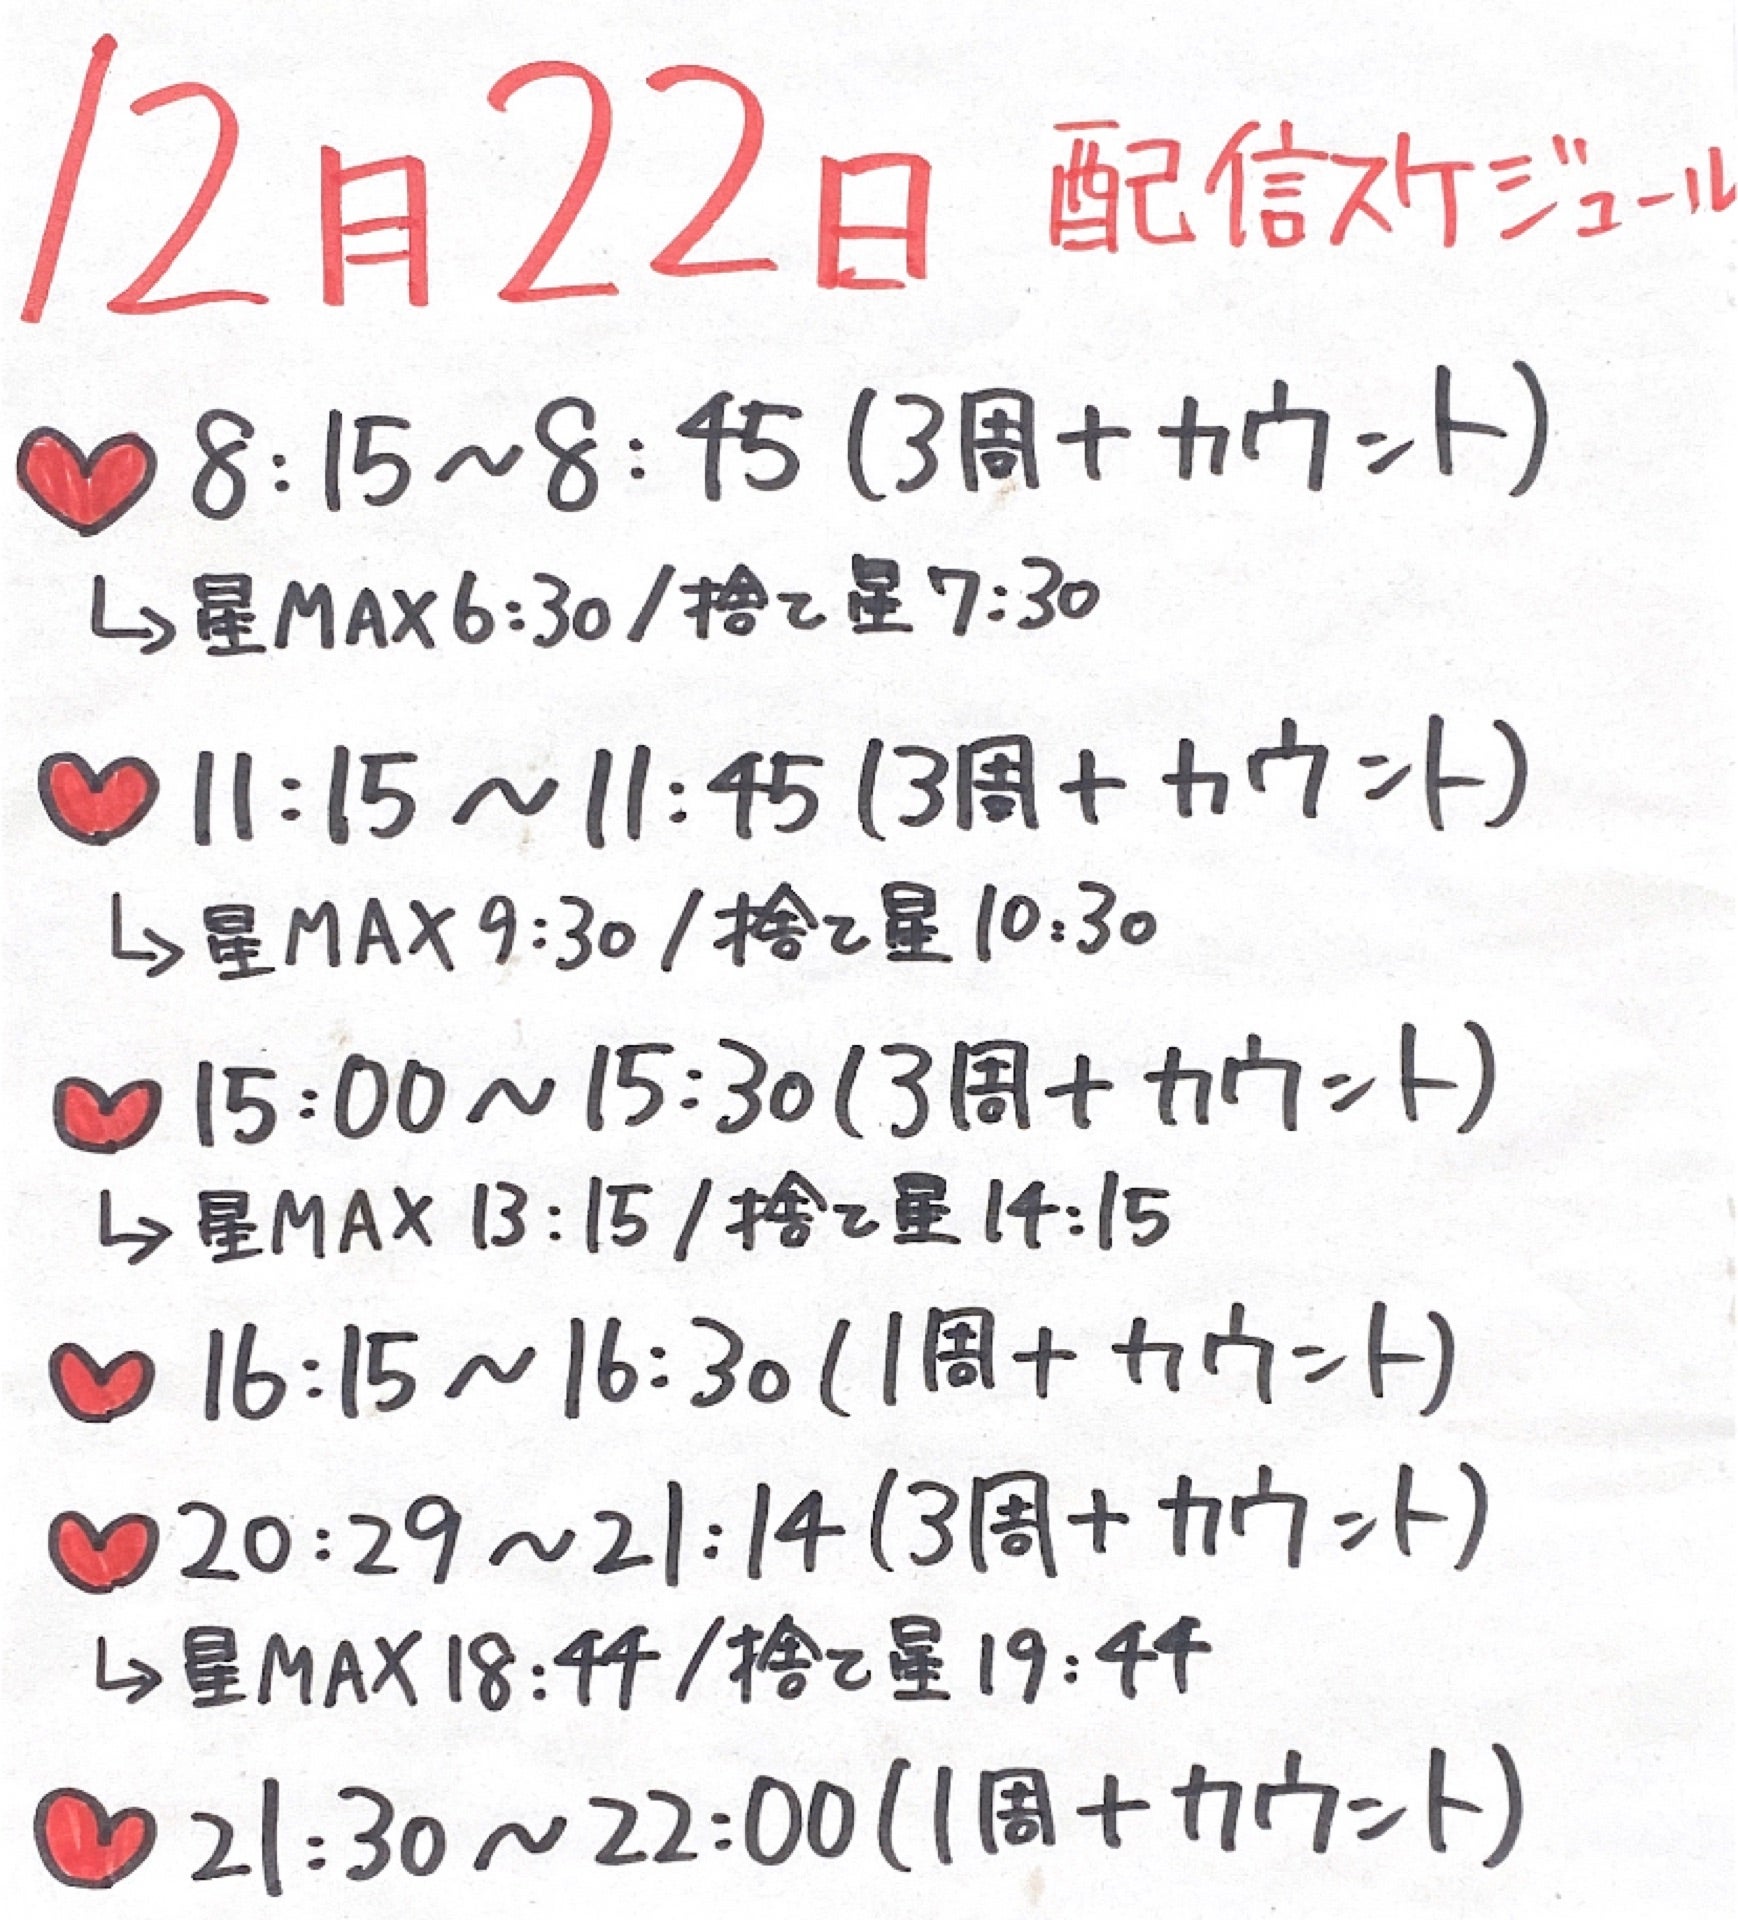 12月22日 配信スケジュール
8:15~8:45(3周+カウント)
↳星MAX6:30/捨て星7:30
11:15~11:45(3周+カウント)
↳星MAX9:30/捨て星10:30
15:00~15:30(3周+カウント)
↳星MAX13:15/捨て星14:15
16:15~16:30(1周+カウント)
20:29~21:14(3周+カウント)
↳星MAX18:44/捨て星19:44
21:30~22:00(1周+カウント)